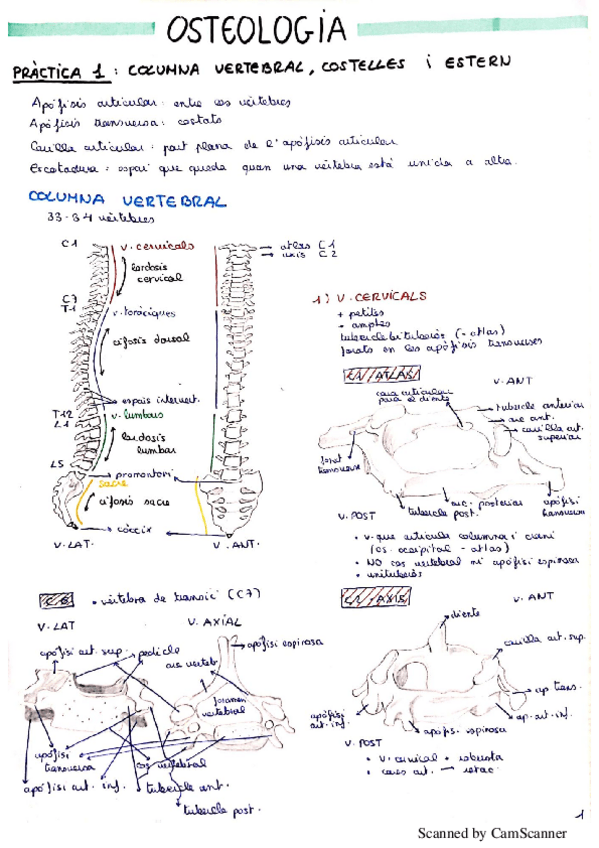 OSTEOLOGIA
PRÀCTICA 1: COLUMNA VERTEBRAL, COSTELLES i ESTERN
Apófisis articular: entre cos vèrtebres
Apófisis transversa: costats
Carilla articular: part plana de l'apófisis articular
Escotadura: espai que queda quan una vèrtebra està unida a altra.
COLUMNA VERTEBRAL
33-34 vèrtebres
C1
v. cervicals
lordosis
cervical
C7
T1
v. toràciques
cifosis dorsal
espais intervert.
T12
v. lumbars
L1
lordosis
lumbar
L5
promontori
sacre
cifosis sacre
còccix
V. LAT.
V. ANT.
atlas C1
axis C2
1) V. CERVICALS
+ petites
- amples
tubercle bituberós (- atlas)
forats en les apófisis transverses
C1 / ATLAS
V. ANT
cara articular
para el diente
tubercle anterior
arc ant.
carilla art.
superior
forat
transvers
arc. posterior
tubercle post.
apófisi
transversa
V. POST
• v. que articular columna i crani
(os. occipital - atlas)
• NO cos vertebral ni apófisi espinosa
• unituberós
• vèrtebra de transició (C7)
V. LAT
V. AXIAL
apófisi art. sup.
pedicle
arc verteb.
apófisi espinosa
foramen
vertebral
apófisi
transversa
cos vertebral
apófisi art. inf.
tubercle ant.
tubercle post.
C2 - AXIS
V. ANT
diente
carilla art. sup.
ap trans.
ap. art. inf.
apófisi
art. inf.
apófisi. espinosa
V. POST
• v. cervical + robusta
• cares art.
1
Scanned by CamScanner